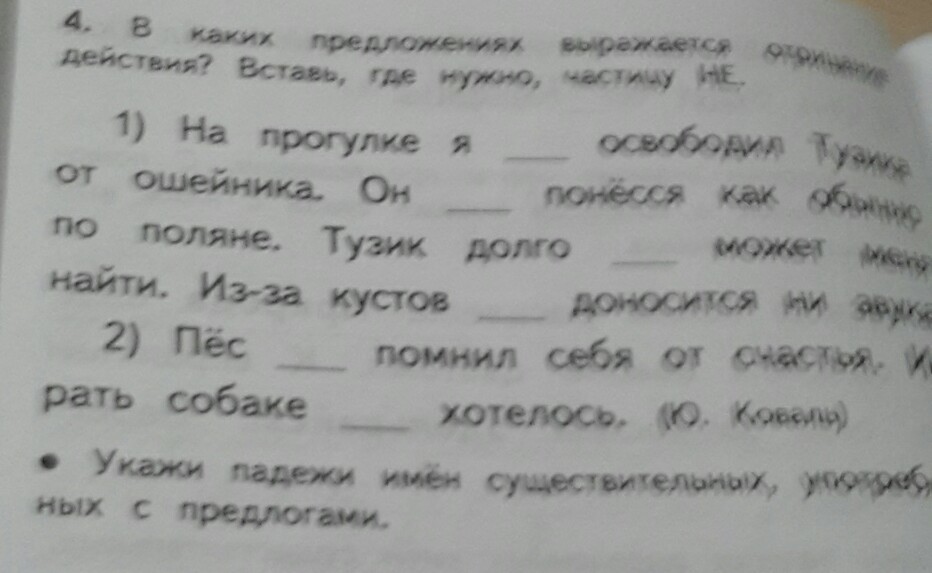 4. В каких предложениях выражается отрицание
действия? Вставь, где нужно, частицу НЕ.
1) На прогулке я ___ освободил Тузика
от ошейника. Он ___ понёсся как обычно
по поляне. Тузик долго ___ может меня
найти. Из-за кустов ___ доносится ни звука
2) Пёс ___ помнил себя от счастья.
рать собаке ___ хотелось. (Ю. Коваль)
• Укажи падежи имён существительных, употреб
ных с предлогами.